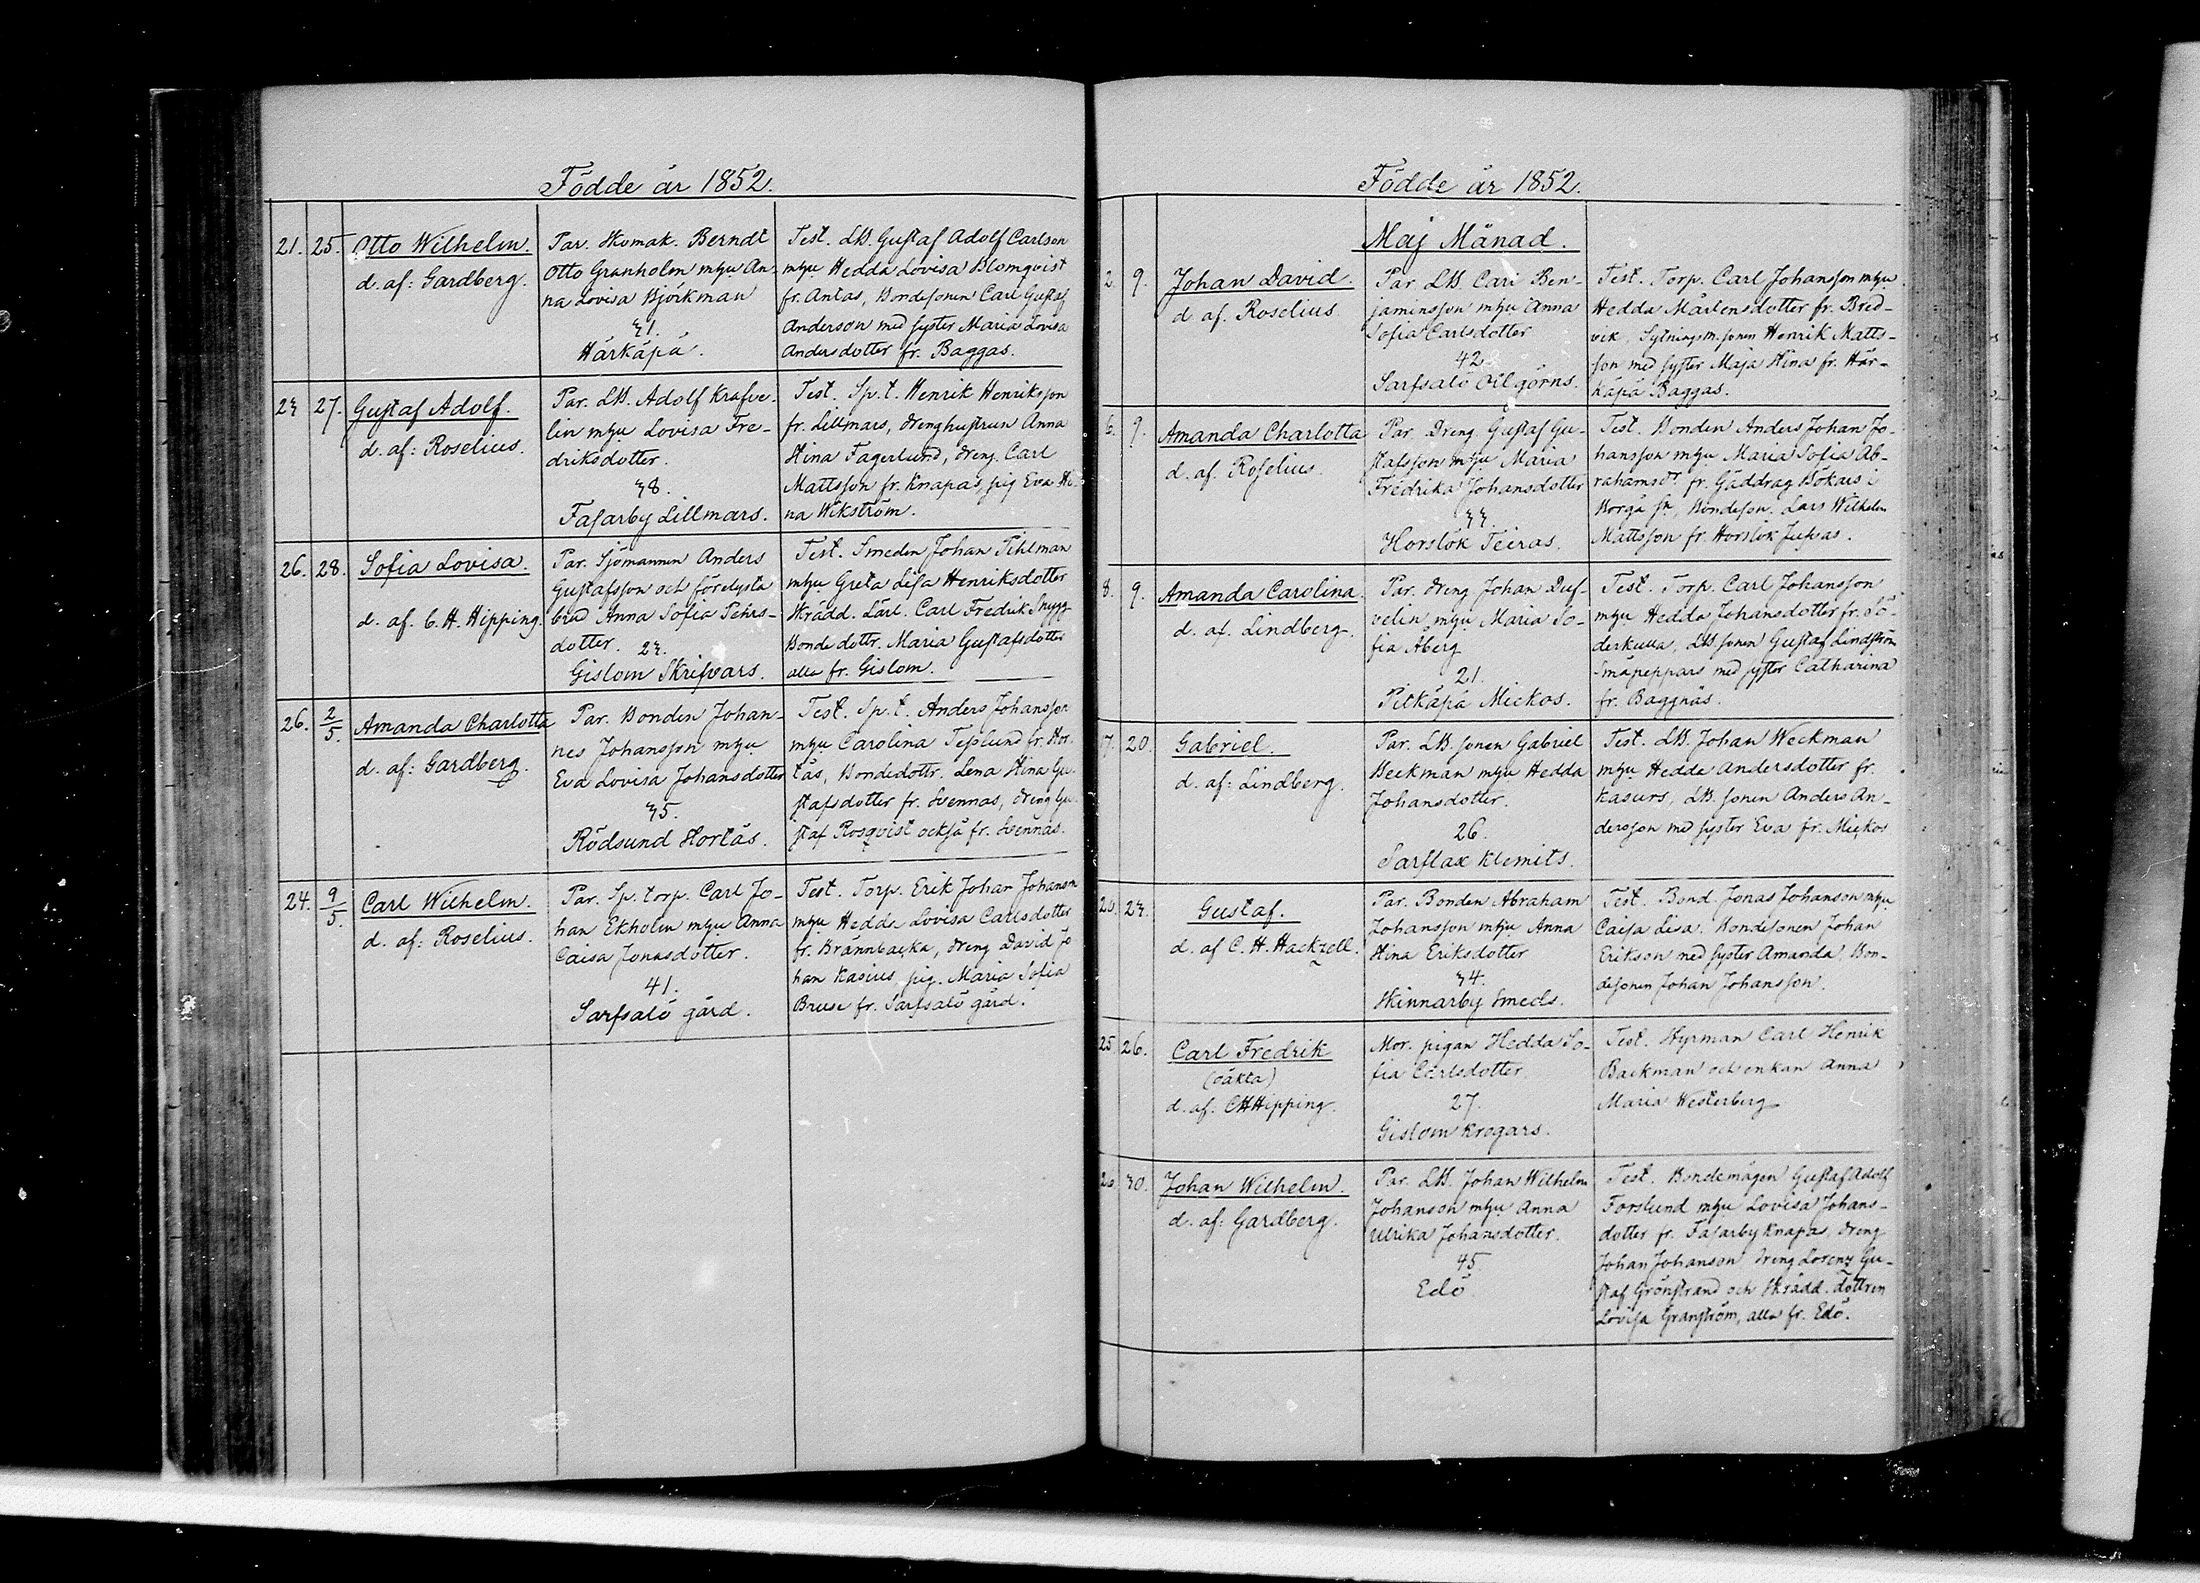 Födde år 1852.
21. 25. Otto Wilhelm.
d. af: Gardberg.
Par. Skomak. Berndt
Otto Granholm mhu An-
na Lovisa Björkman
31.
Härkäpä.
Test. LB. Gustaf Adolf Carlson
mhu Hedda Lovisa Blomqvist
fr. Antas, Bondesonen Carl Gustaf
Anderson med syster Maria Lovisa
Andersdotter fr. Baggas.
23 27. Gustaf Adolf.
d. af: Roselius.
Par. LB. Adolf Krafve-
lin mhu Lovisa Fre-
driksdotter.
38.
Fasarby Lillmars.
Test. Sp.t. Henrik Henriksson
fr. Lillmars, drenghustrun Anna
Stina Fagerlund, dreng. Carl
Mattsson fr. Knapas, pig Eva Sti-
na Wikström.
26. 28. Sofia Lovisa.
d. af. C. H. Hipping.
Par. Sjömannen Anders
Gustafsson och
Anna Sofia Pehrs-
dotter. 23.
Gislom Skrifvars.
Test. Smeden Johan Pihlman
mhu Greta Lisa Henriksdotter
Skrädd. Lärl. Carl Fredrik Snygg
Bonde dottr. Maria Gustafsdotter
alla fr. Gislom.
26. 2/5. Amanda Charlotta
d. af: Gardberg.
Par. Bonden Johan-
nes Johansson mhu
Eva Lovisa Johansdotter
35.
Rödsund Hortas.
Test. Sp.t. Anders Johansson
mhu Carolina Teslund fr. Hor-
tas, Bondedottr. Lena Stina Gu-
stafsdotter fr. Svennas, dreng Gu-
staf Rosqvist också fr. Svennas.
24. 9/5. Carl Wilhelm.
d. af: Roselius.
Par. Sp. torp. Carl Jo-
han Ekholm mhu Anna
Caisa Jonasdotter.
41.
Sarfsalö gård.
Test. Torp. Erik Johan Johanson
mhu Hedda Lovisa Carlsdotter
fr. Brännbacka, dreng David Jo
han Kasius, pig. Maria Sofia
Bruse fr. Sarfsalö gård.
Födde år 1852.
Maj Månad.
2. 9. Johan David.
d. af. Roselius
Par LB. Carl Ben-
jaminsson mhu Anna
Sofia Carlsdotter
42
Sarfsalö Oilgörns.
Test. Torp. Carl Johansson mhu
Hedda Mårtensdotter fr. Bred-
vik, Sytningsm. sonen Henrik Matts-
son med syster Maja Stina fr. Här-
käpä Baggas.
6. 9. Amanda Charlotta
d. af. Roselius.
Par. Dreng Gustaf Gu-
stafsson mhu Maria
Fredrika Johansdotter
33.
Horslök Teiras.
Test. Bonden Anders Johan Jo-
hansson mhu Maria Sofia Ab-
rahamsdr. fr. Gäddrag Bökars i
Borgå sn, Bondeson. Lars Wilhelm
Mattsson fr. Horslök Jussas.
8. 9. Amanda Carolina.
d. af. Lindberg.
Par. dreng Johan Duf-
velin mhu Maria So-
fia Åberg
21.
Pitkäpä Mickos.
Test. Torp. Carl Johansson
mhu Hedda Johansdotter fr. Sö-
derkulla, LB. sonen Gustaf Lindström
Småpeppars med syster Catharina
fr. Baggnäs.
17. 20. Gabriel.
d. af: Lindberg.
Par. LB. sonen Gabriel
Beckman mhu Hedda
Johansdotter.
26.
Sarflax Klemits.
Test. LB. Johan Weckman
mhu Hedda Andersdotter fr.
Kasurs, LB. sonen Anders An-
dersson med syster Eva fr. Mickos
20. 23. Gustaf.
d. af C. H. Hackzell.
Par. Bonden Abraham
Johansson mhu Anna
Stina Eriksdotter
34.
Skinnarby Smeds.
Test. Bond. Jonas Johanson mhu
Caisa Lisa. Bondesonen Johan
Erikson med syster Amanda, Bon-
desonen Johan Johansson.
25 26. Carl Fredrik
(oäkta)
d. af. CHHipping.
Mor. pigan Hedda So-
fia Carlsdotter.
27.
Gislom Krogars.
Test. Styrman Carl Henrik
Backman och enkan Anna
Maria Westerberg
26 30. Johan Wilhelm.
d. af: Gardberg.
Par. LB. Johan Wilhelm
Johanson mhu Anna
Ulrika Johansdotter.
45
Edö.
Test. Bondemågen Gustaf Adolf
Forslund mhu Lovisa Johans-
dotter fr. Fasarby Knapas, dreng
Johan Johanson dreng Lorenz Gu-
staf Grönstrand och Skrädd. dottren
Lovisa Granström, alla fr. Edö.